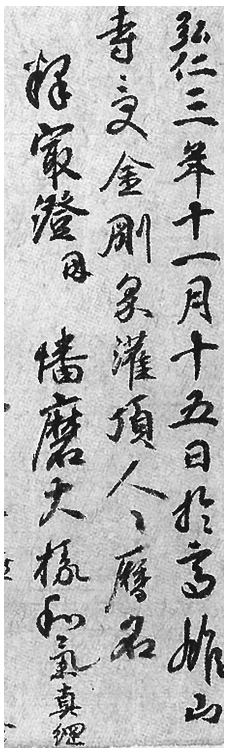 弘仁三年十一月十五日於高雄山
寺受金剛界灌頂人〻暦名
釋最澄因 播磨大掾和氣真綱